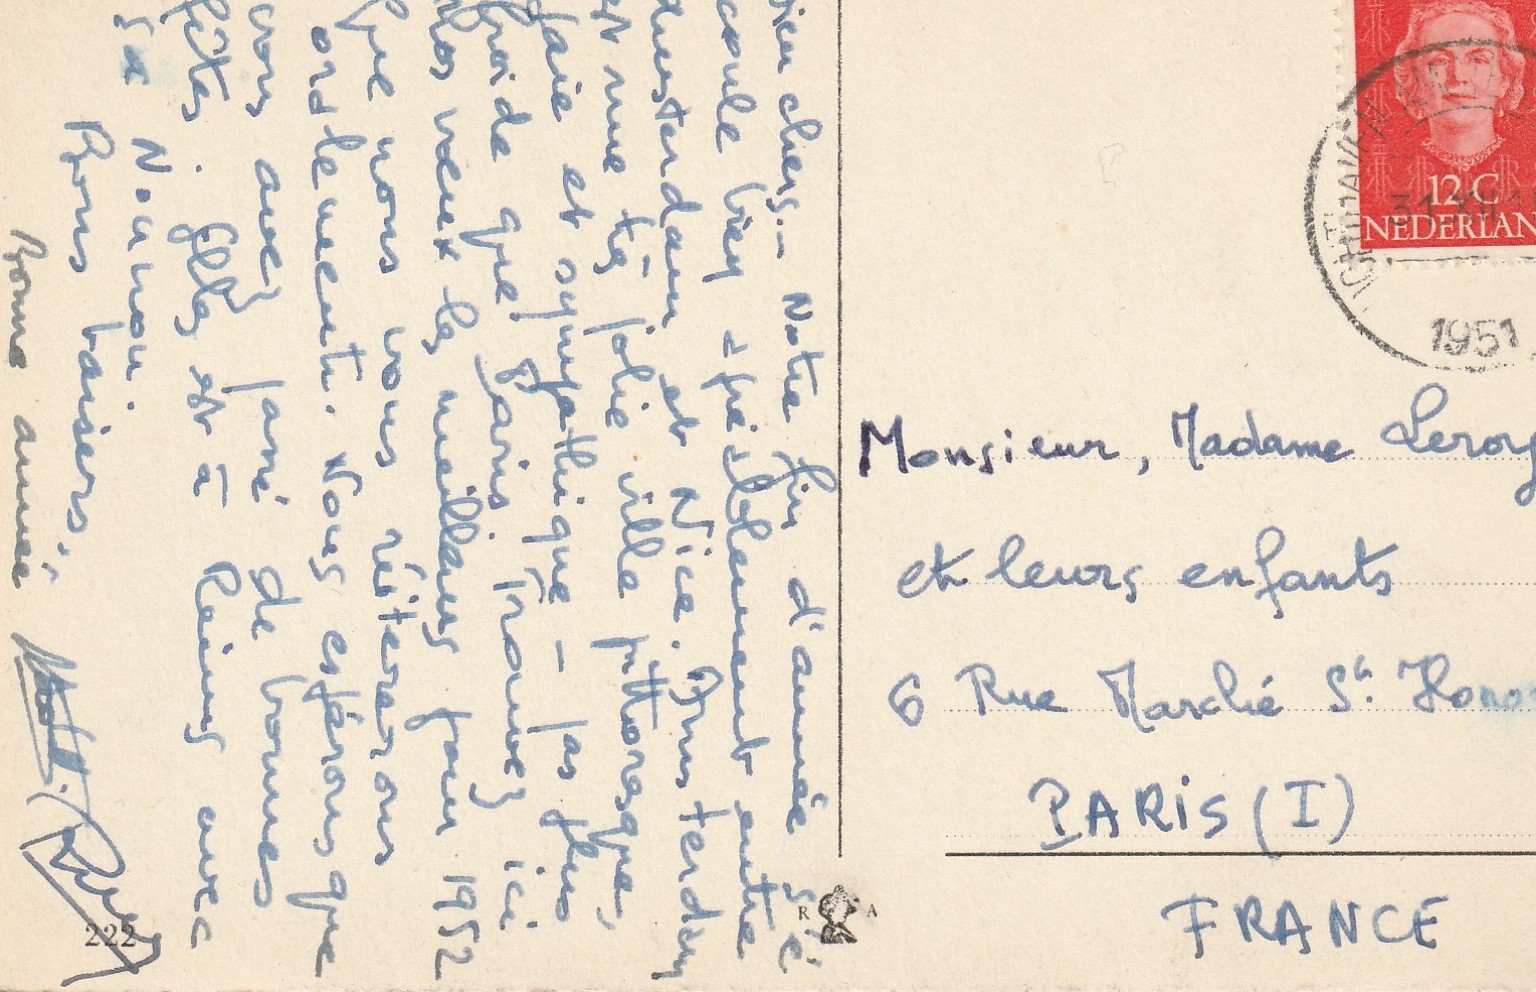 Bien chers, Notre fin d'année s'é
coule bien rapidement entre
Amsterdam et Nice. Amsterdam
est une très jolie ville pittoresque,
gaie et sympathique - pas plus
froide que Paris. Trouvez ici
nos vœux les meilleurs pour 1952
que nous vous réitérerons
oralement. Nous espérons que
vous avez passé de bonnes
fêtes. Gilles est à Reims avec
sa Nounou.
Bons baisers,
Bonne année
NEDERLAN
12 C
31 XII
1951
Monsieur, Madame Leroy
et leurs enfants
6 Rue Marché St. Honoré
PARIS (I)
FRANCE
R A
222